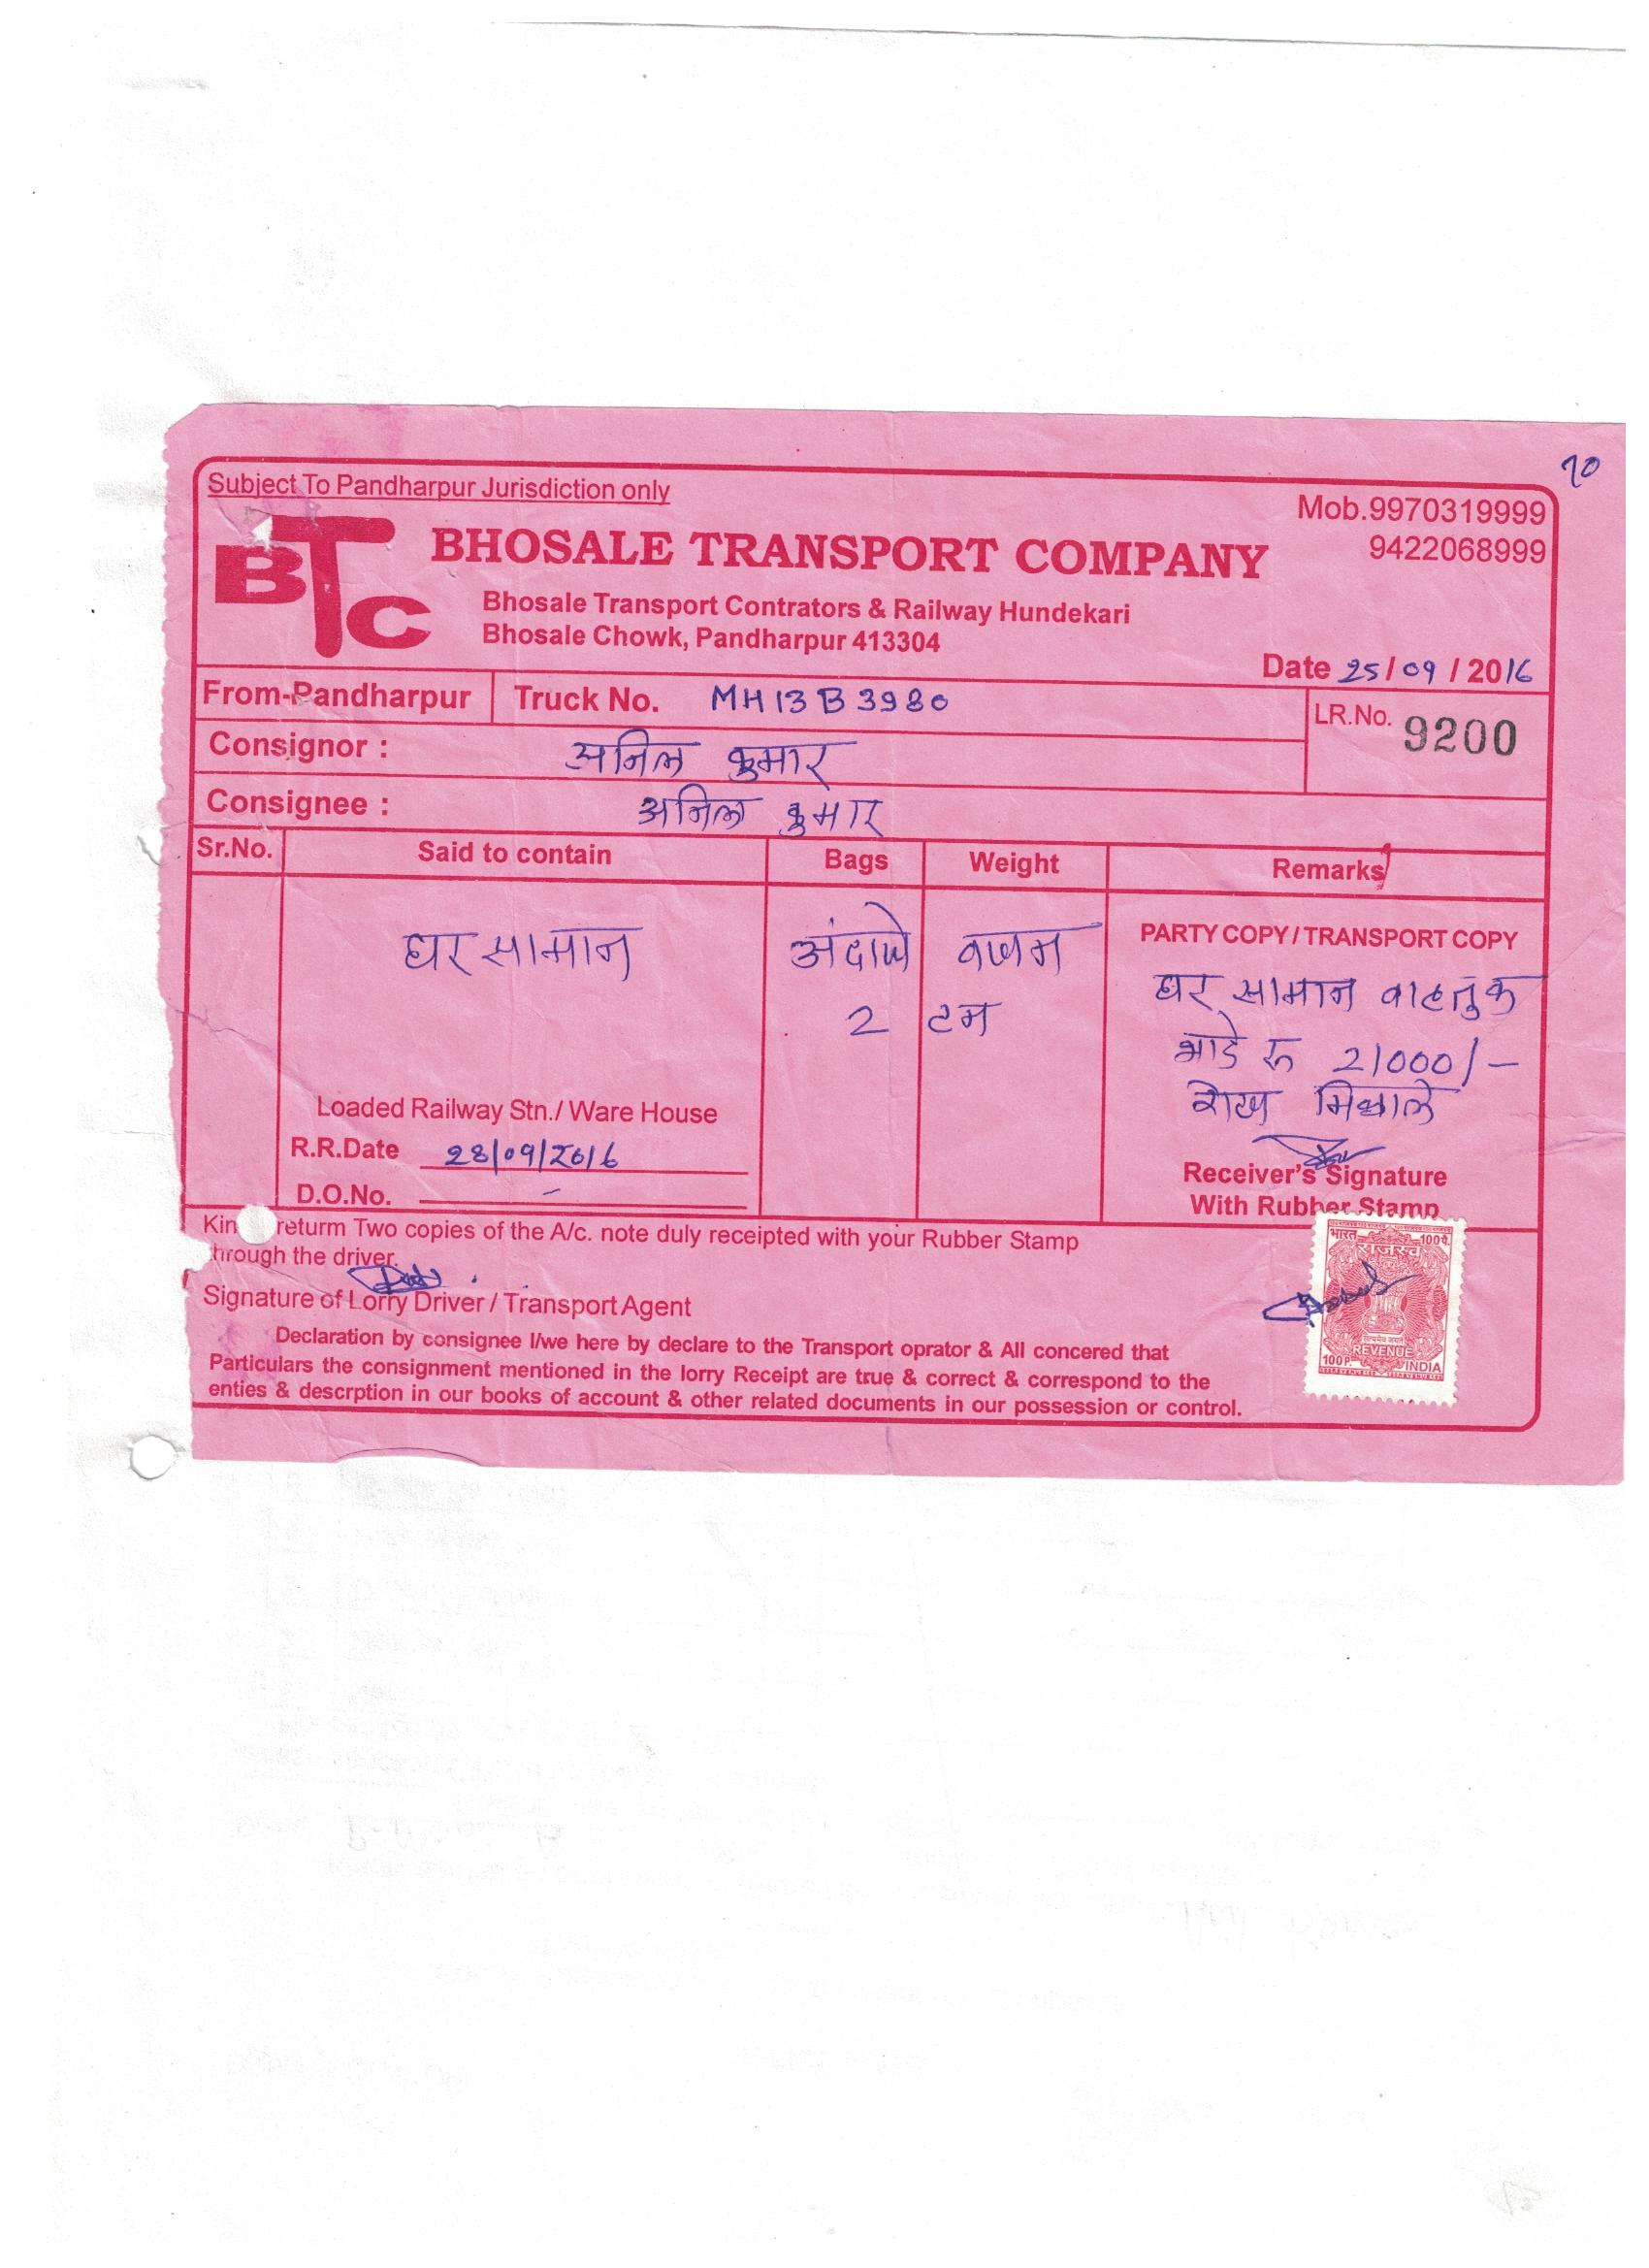 १०
Subject To Pandharpur Jurisdiction only
Mob.9970319999
9422068999
BTC
BHOSALE TRANSPORT COMPANY
Bhosale Transport Contrators & Railway Hundekari
Bhosale Chowk, Pandharpur 413304
Date 25/09/2016
From-Pandharpur Truck No. MH13B3980
LR.No. 9200
Consignor : अनिल कुमार
Consignee : अनिल कुमार
Sr.No. Said to contain Bags Weight Remarks
PARTY COPY / TRANSPORT COPY
घर सामान अंदाजे वजन
2 टन
घर सामान वाहतुक
भाडे रू 21000/-
रोख मिळाले
Loaded Railway Stn./ Ware House
R.R.Date 28/09/2016
D.O.No. -
Receiver's Signature
With Rubber Stamp
Kin returm Two copies of the A/c. note duly receipted with your Rubber Stamp
hrough the driver.
Signature of Lorry Driver / Transport Agent
Declaration by consignee I/we here by declare to the Transport oprator & All concered that
Particulars the consignment mentioned in the lorry Receipt are true & correct & correspond to the
enties & descrption in our books of account & other related documents in our possession or control.
भारत 100पै.
राजस्व
सत्यमेव जयते
REVENUE
100P INDIA